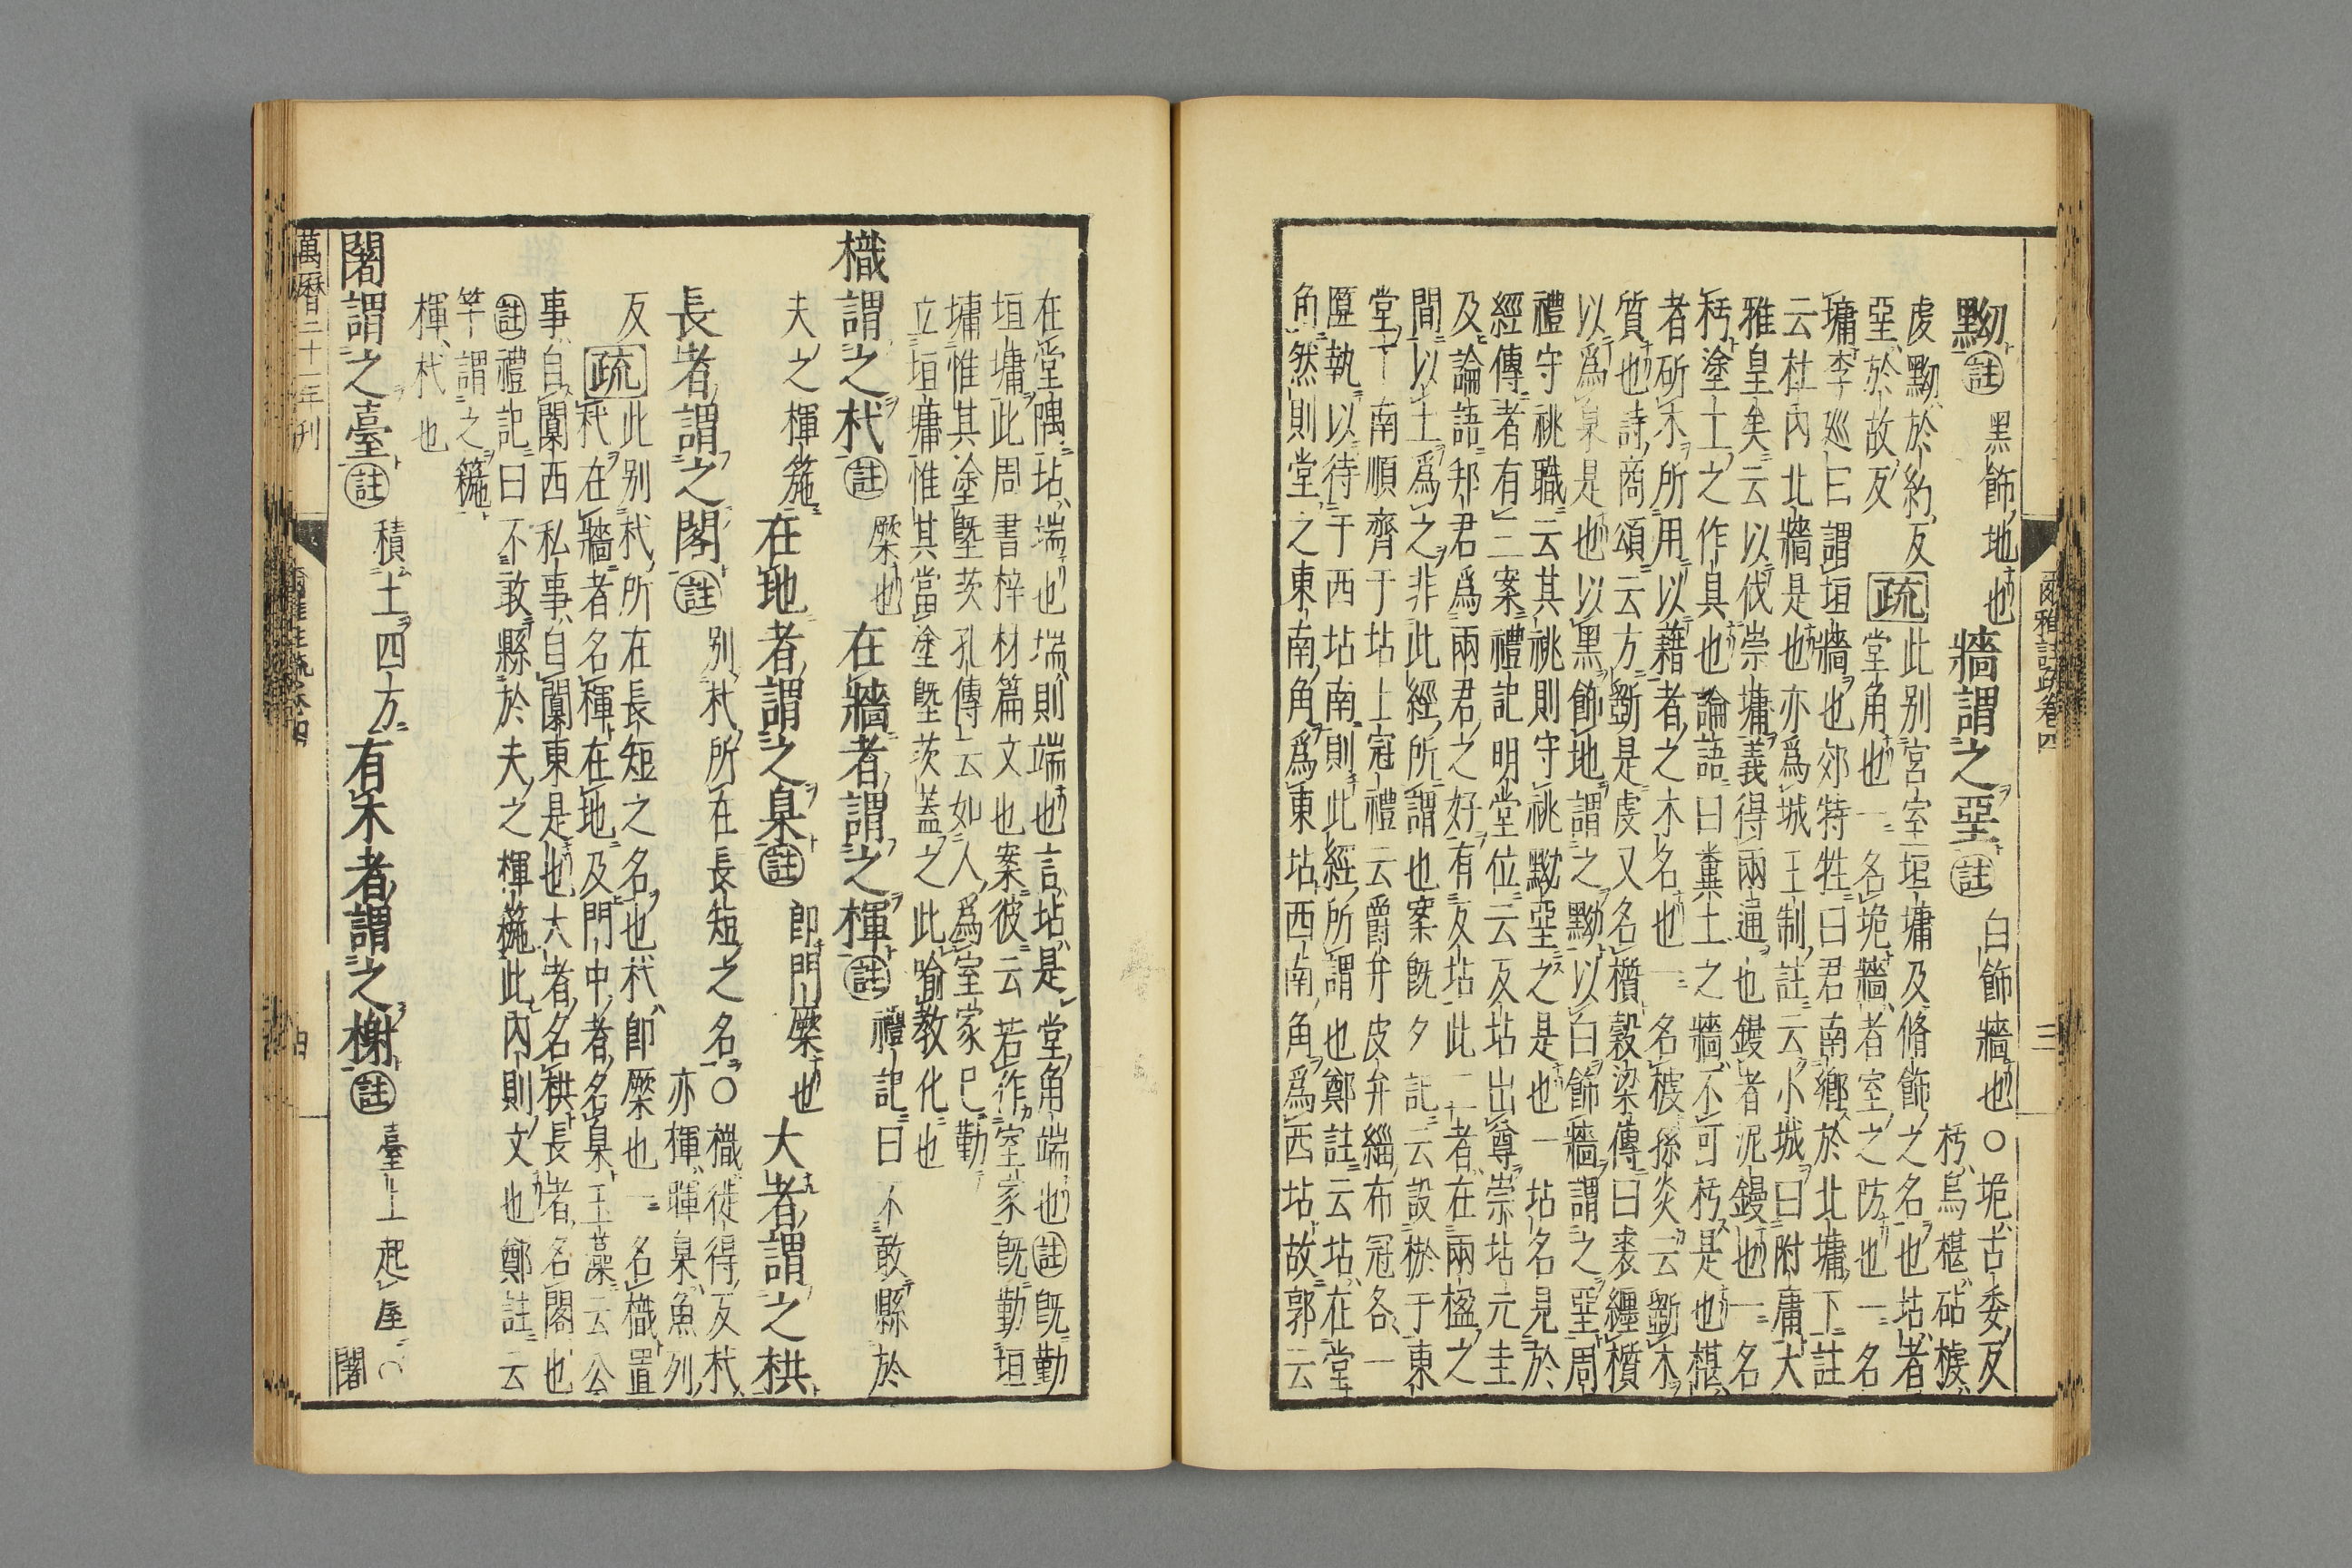 黝註黑飾地也牆謂之堊註白飾牆也○垝古委反
杇烏椹砧榩
虔黝於約反疏此別宮室垣墉及脩飾之名也坫者
堊於故反堂角也一名垝牆者室之防也一名
墉李巡曰謂垣牆也郊特牲曰君南鄉於北墉下註
云杜內北牆是也亦爲城王制註云小城曰附庸大
雅皇矣云以伐崇墉義得兩通也鏝者泥鏝也一名
杇塗土之作具也論語曰糞土之牆不可杇是也椹
者斫木所用以藉者之木名也一名榩孫炎云斲木
質也詩商頌云方斲是虔又名櫍穀梁傳曰裘纏櫍
以爲臬是也以黑飾地謂之黝以白飾牆謂之堊周
禮守祧職云其祧則守祧黝堊之是也一坫名見於
經傳者有二案禮記明堂位云反坫出尊崇坫元圭
及論語邦君爲兩君之好有反坫此二者在兩楹之
間以土爲之非此經所謂也案既夕記云設棜于東
堂下南順齊于坫上冠禮云爵弁皮弁緇布冠各一
匴執以待于西坫南則此經所謂也鄭註云坫在堂
角然則堂之東南角爲東坫西南角爲西坫故郭云
爾雅註疏卷四
三
在堂隅坫端也端則端也言坫是堂角端也註既勤
垣墉此周書梓材篇文也案彼云若作室家既勤垣
墉惟其塗塈茨孔傳云如人爲室家已勤
立垣墉惟其當塗塈茨蓋之此喻教化也
樴謂之杙註橜也在牆者謂之楎註禮記曰不敢縣於
夫之楎箷在地者謂之臬註即門橜也大者謂之栱
長者謂之閣註別杙所在長短之名○樴徒得反杙
亦楎暉臬魚列
反疏此別杙所在長短之名也杙即橜也一名樴置
杙在牆者名楎在地及門中者名臬玉藻云公
事自闑西私事自闑東是也大者名栱長者名閣也
註禮記曰不敢縣於夫之楎箷此內則文也鄭註云
竿謂之箷
楎杙也
闍謂之臺註積土四方有木者謂之榭註臺上起屋○
闍
萬曆二十一年刊
爾雅註疏卷四
四